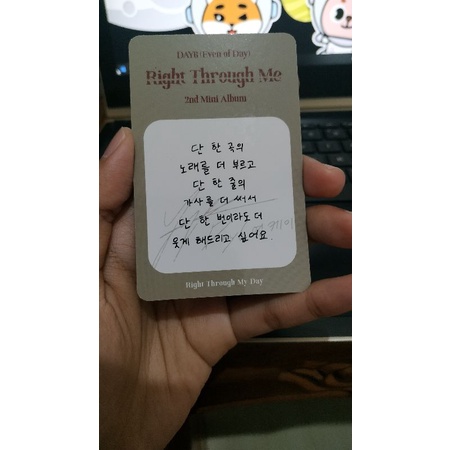 DAY6 (Even of Day)
Right Through Me
2nd Mini Album
단 한 곡의
노래를 더 부르고
단 한 줄의
가사를 더 써서
단 한 번이라도 더
웃게 해드리고 싶어요.
Right Through My Day